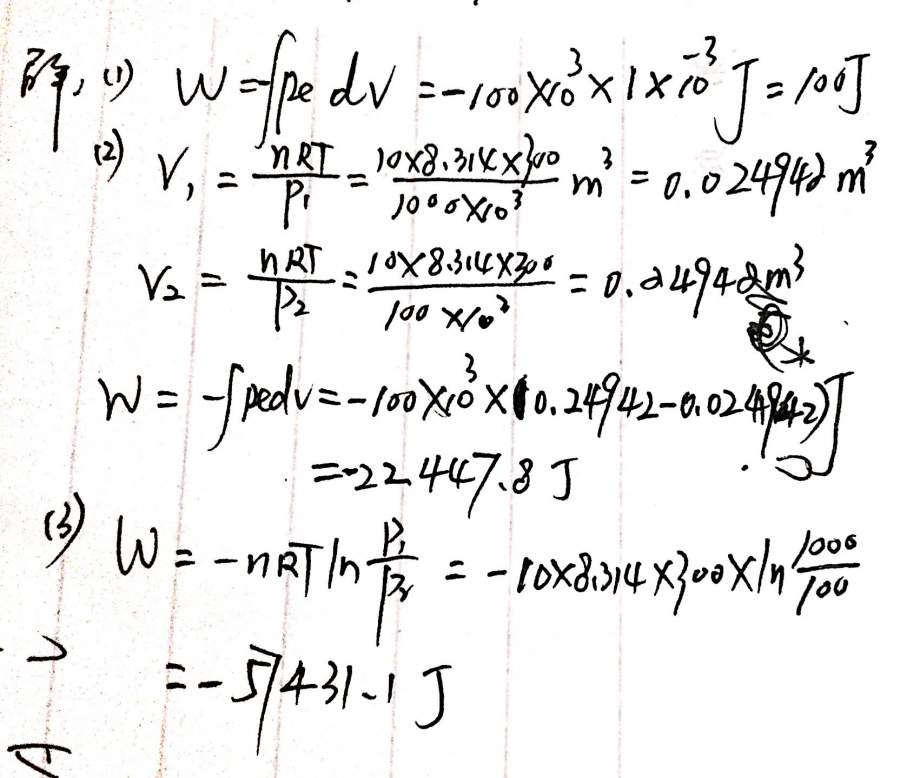 解，(1) W=-∫pe dV =-100×10³×1×10⁻³J=100J
(2) V₁ = nRT/P₁ = 10×8.314×300/1000×10³ m³ = 0.024942m³
V₂ = nRT/P₂ = 10×8.314×300/100×10³ = 0.24942m³
W = -∫pedv=-100×10³×(0.24942-0.024942)J
=-22447.8 J
(3) W = -nRT ln P₁/P₂ = -10×8.314×300×ln 1000/100
=-57431.1 J